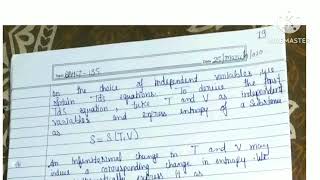 19
MASTER
BPHCT-135
25/March/2020
On the choice of independent variables, we
obtain Tds equations. To derive the first
Tds equation, take T and V as independent
variables and express entropy of a substance
as
S = S(T,V)
An infinitesimal change in T and V may
induce a corresponding change in entropy. We
express it as